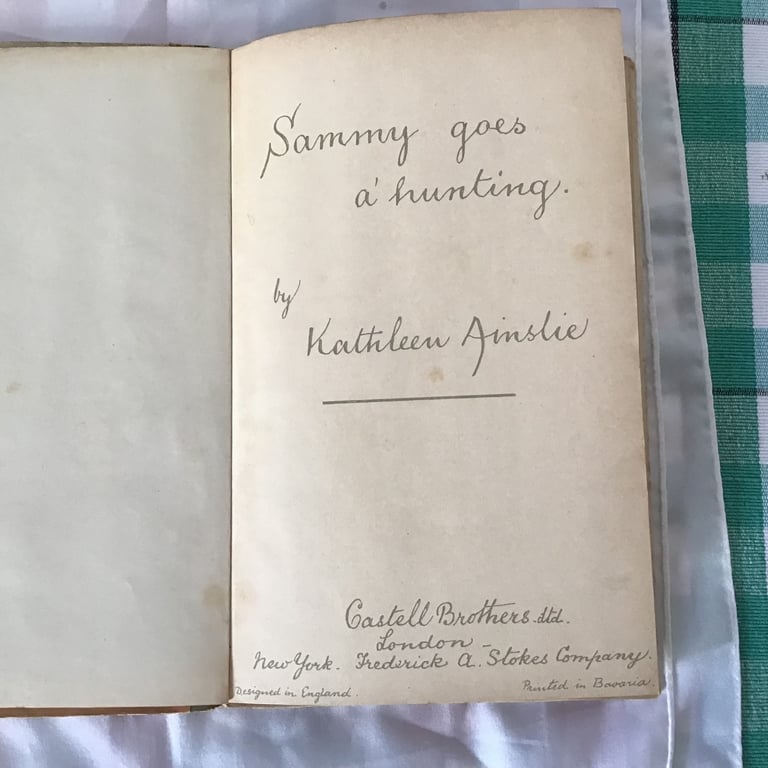 Sammy goes
a' hunting.
by
Kathleen Ainslie
Castell Brothers. Ltd.
London -
New York. Frederick A. Stokes Company.
Designed in England.
Printed in Bavaria.